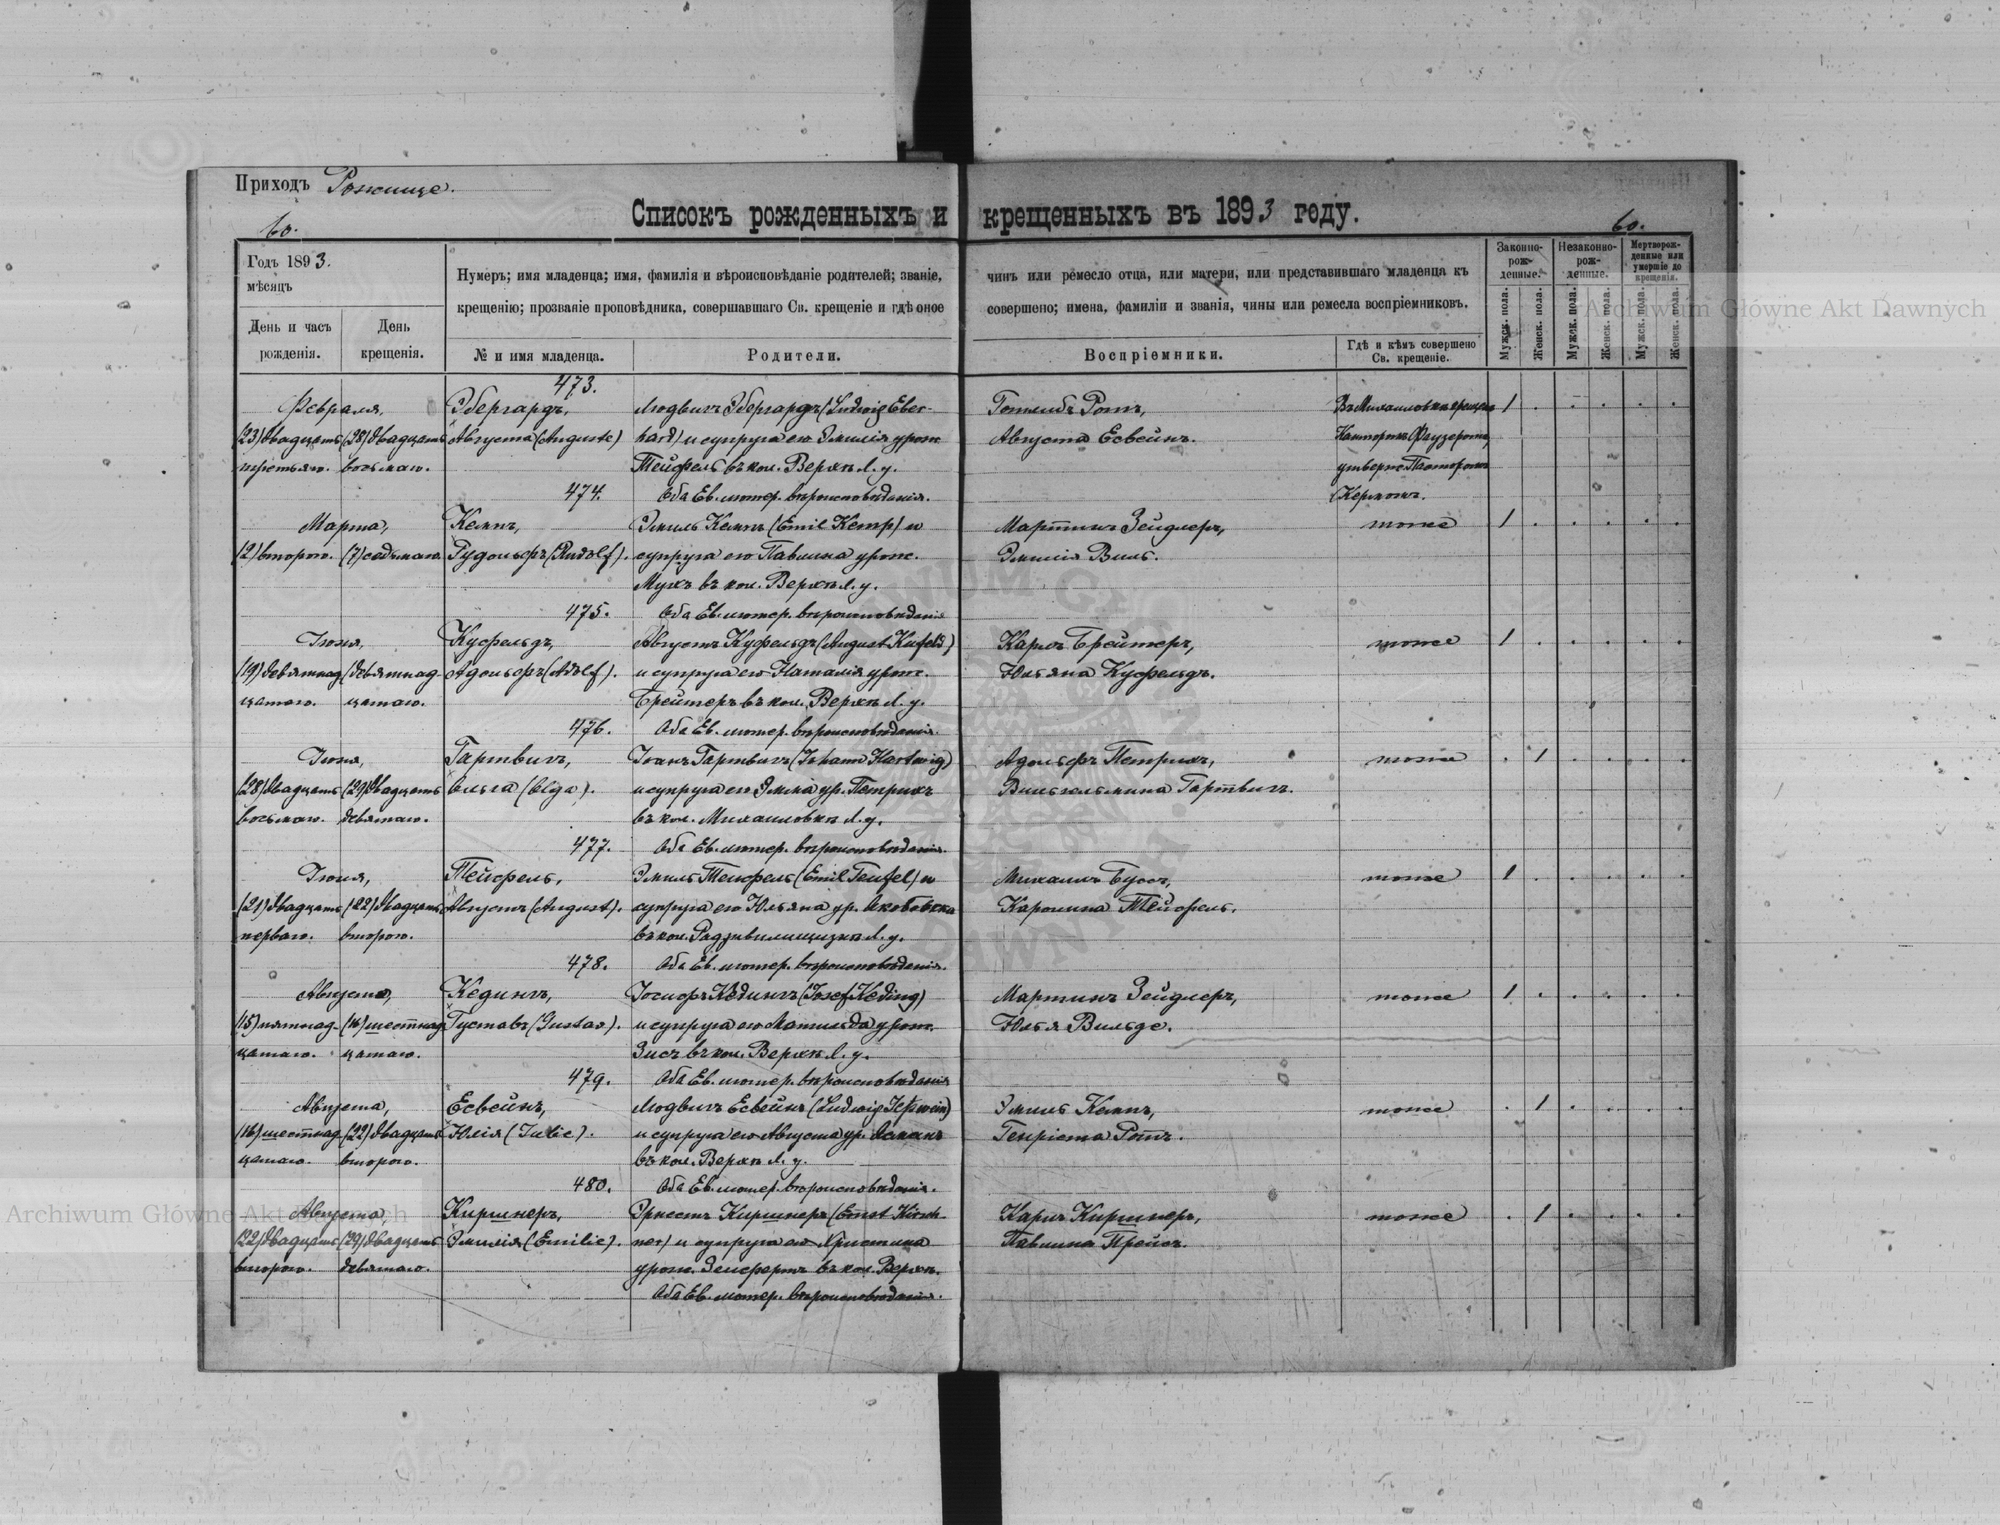 Приходъ Рожище.
Списокъ рожденныхъ и крещенныхъ въ 1893 году.
60.
60.
Годъ 1893.
мѣсяцъ
День и часъ рожденія.
День крещенія.
Нумеръ; имя младенца; имя, фамилія и вѣроисповѣданіе родителей; званіе, чинъ или ремесло отца, или матери, или представившаго младенца къ
крещенію; прозваніе проповѣдника, совершавшаго Св. крещеніе и гдѣ оное совершено; имена, фамиліи и званія, чины или ремесла воспріемниковъ.
№ и имя младенца.
Родители.
Воспріемники.
Гдѣ и кѣмъ совершено Св. крещеніе.
Законно-рож-денные.
Незаконно-рож-денные.
Мертворож-денные или умершіе до крещенія.
Мужск. пола.
Женск. пола.
Мужск. пола.
Женск. пола.
Мужск. пола.
Женск. пола.
473.
Февраля, Эбергардъ, Людвигъ Эбергардъ (Ludwig Eber- Готлибъ Ротъ, 1
(23) двадцать (28) двадцать Августъ (August) hard) и супруга его Эмилія урож. Августа Есвейнъ.
третьяго. восьмаго. Тейфель въ кол. Верхн. Л. у. утвержд. Пасторомъ
474. Оба Ев. лютер. вѣроисповѣданія. Керномъ.
Марта, Кемпъ, Эмиль Кемпъ (Emil Kemp) и Мартинъ Зейдлеръ, тоже 1
(2) второго. (7) седьмаго. Рудольфъ (Rudolf). супруга его Павлина урож. Эмилія Виль.
въ кол. Верхн. Л. у.
475. Оба Ев. лютер. вѣроисповѣданія
Іюня, Куфельдъ, Августъ Куфельдъ (August Kufeld) Карлъ Брейтеръ, тоже 1
(19) девятнад (девятнад Адольфъ (Adolf). и супруга его Наталія урож. Юльяна Куфельдъ.
цатаго. цатаго. Брейтеръ въ кол. Верхн. Л. у.
476. Оба Ев. лютер. вѣроисповѣданія.
Іюня, Гартвигъ, Іоанъ Гартвигъ (Johann Hartwig) Адольфъ Петрихъ, тоже 1
(28) двадцать (29) двадцать Ольга (Olga). и супруга его Эмма ур. Петрихъ Вильгельмина Гартвигъ.
восьмаго. девятаго. въ кол. Михаиловкѣ Л. у.
477. Оба Ев. лютер. вѣроисповѣданія.
Іюня, Тейфель, Эмиль Тейфель (Emil Teufel) и Михаилъ Буссъ, тоже 1
(21) двадцать (22) двадцать Августъ (August). супруга его Юльяна ур. Якобовска Каролина Тейфель.
перваго. второго. въ кол. Л. у.
478. Оба Ев. лютер. вѣроисповѣданія.
Августа, Кедингъ, Іосифъ Кедингъ (Josef Keding) Мартинъ Зейдлеръ, тоже 1
(15) пятнад- (16) шестнад Густавъ (Gustav). и супруга его Матильда урож. Юлья Вильде.
цатаго. цатаго. Зисъ въ кол. Верхн. Л. у.
479. Оба Ев. лютер. вѣроисповѣданія
Августа, Есвейнъ, Людвигъ Есвейнъ (Ludwig Jeßwein) Эмиль Кемпъ, тоже 1
(16) шестнад (22) двадцать Юлія (Julie). и супруга его Августа ур. Генріета Ротъ.
цатаго. второго. въ кол. Верхн. Л. у.
480. Оба Ев. лютер. вѣроисповѣданія.
Августа, Киршнеръ, Эрнестъ Киршнеръ (Ernst Kirsch- Карлъ Киршнеръ, тоже 1
(22) двадцать (29) двадцать Эмилія (Emilie). ner) и супруга его Христина Павлина Прейсъ.
второго. девятаго. урож. Зейфертъ въ кол. Верхн.
Оба Ев. лютер. вѣроисповѣданія.
Archiwum Główne Akt Dawnych
Archiwum Główne Akt Dawnych
Archiwum Główne Akt Dawnych